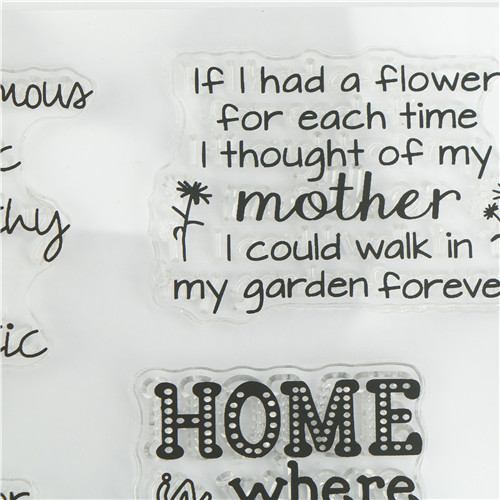 mous
c
thy
tic
If I had a flower
for each time
I thought of my
mother
I could walk in
my garden foreve
HOME
is where